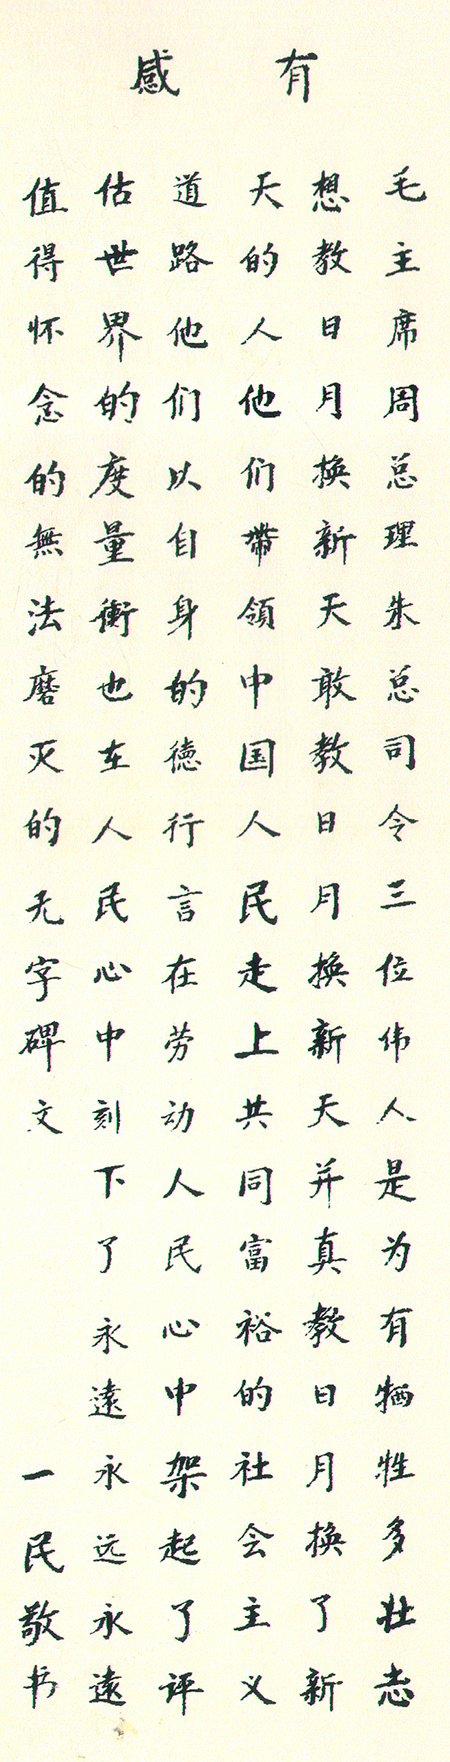 有感
毛主席周总理朱总司令三位伟人是为有牺牲多壮志
想教日月换新天敢教日月换新天并真教日月换了新
天的人他们帶領中国人民走上共同富裕的社会主义
道路他们以自身的德行言在劳动人民心中架起了评
估世界的度量衡也在人民心中刻下了永遠永远永遠
值得怀念的無法磨灭的无字碑文
一民敬书